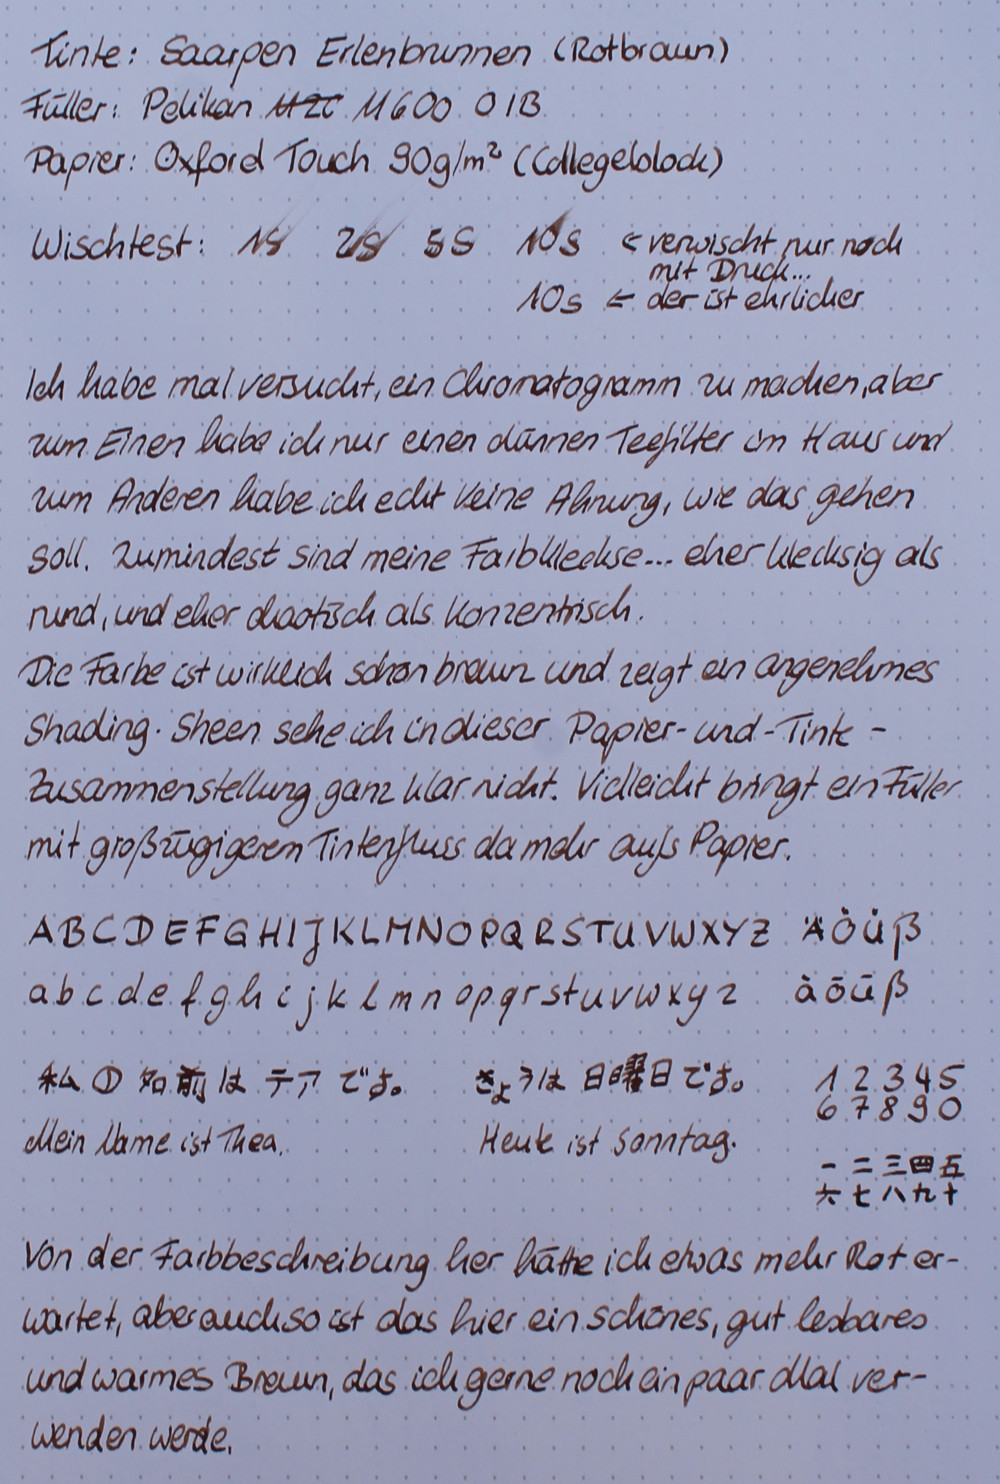 Tinte: Saarpen Erlenbrunnen (Rotbraun)
Füller: Pelikan M20 M600 OIB
Papier: Oxford Touch 90g/m² (Collegeblock)
Wischtest: 1s 2s 5s 10s ← verwischt nur noch
mit Druck...
10s ← der ist ehrlicher
Ich habe mal versucht, ein Chromatogramm zu machen, aber
zum Einen habe ich nur einen dünnen Teefilter im Haus und
zum Anderen habe ich echt keine Ahnung, wie das gehen
soll. Zumindest sind meine Farbkleckse... eher klecksig als
rund, und eher chaotisch als konzentrisch.
Die Farbe ist wirklich schön braun und zeigt ein angenehmes
Shading. Sheen sehe ich in dieser Papier-und-Tinte-
Zusammenstellung ganz klar nicht. Vielleicht bringt ein Füller
mit großzügigerem Tintenfluss da mehr aufs Papier.
ABCDEFGHIJKLMNOPQRSTUVWXYZ ÄÖÜß
abcdefghijklmnopqrstuvwxyz äöüß
私の名前はテアです。 きょうは日曜日です。 12345
67890
Mein Name ist Thea. Heute ist Sonntag.
一二三四五
六七八九十
Von der Farbbeschreibung her hätte ich etwas mehr Rot er-
wartet, aber auch so ist das hier ein schönes, gut lesbares
und warmes Braun, das ich gerne noch ein paar Mal ver-
wenden werde.